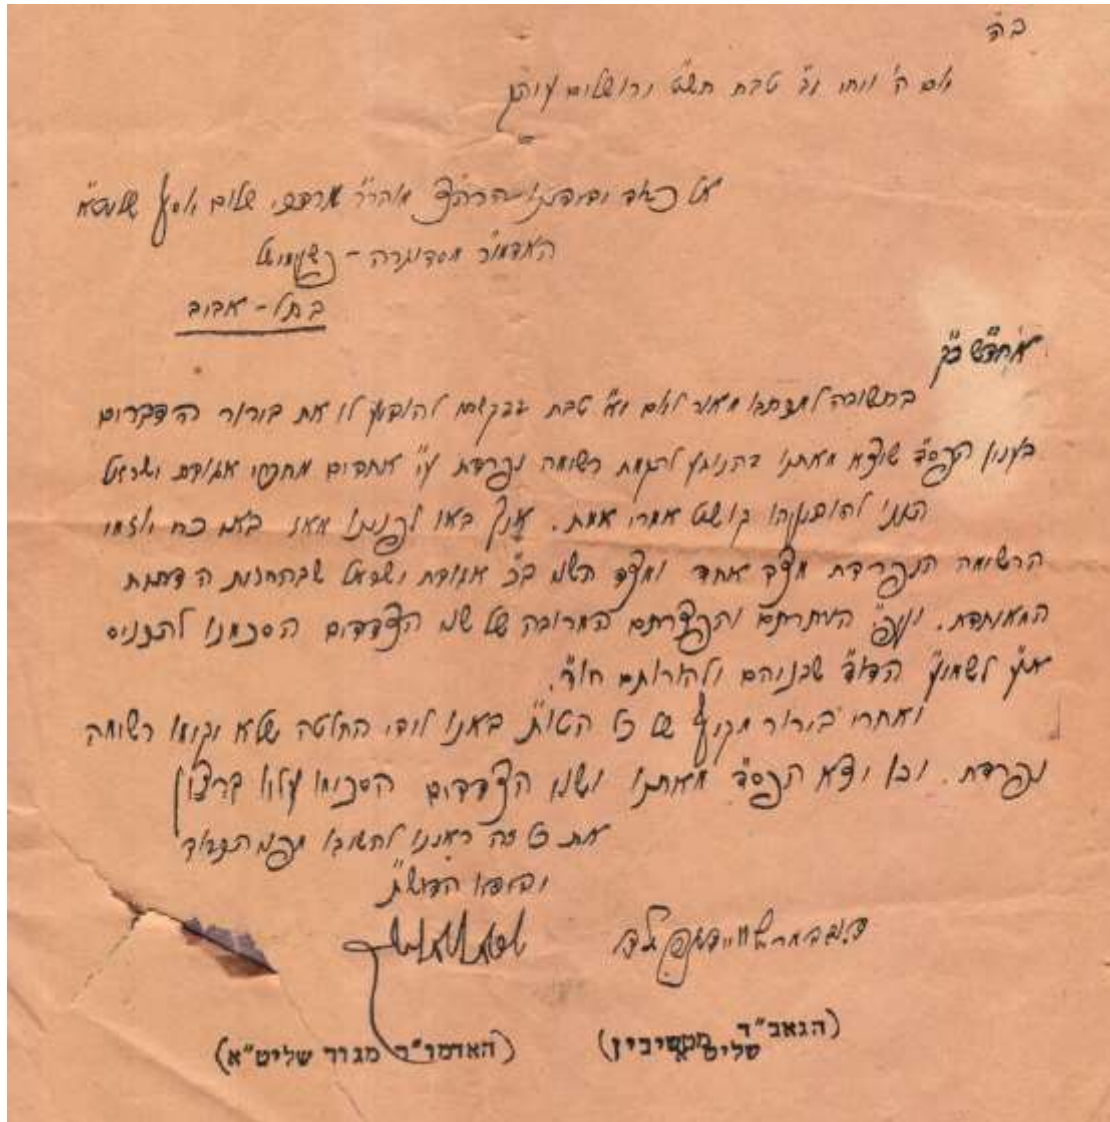 ב"ה
יום ה' ויחי י"ב טבת תש"ט ירושלים עיה"ק
אל כבוד ידידנו הרה"צ מוהר"ר מרדכי שלום יוסף שליט"א
האדמו"ר מסדיגורה - פשעמישל
בתל - אביב
אחדש"ה כ"ק
בתשובה למכתבו מאור ליום י"א טבת בבקשו להודיע לו את בירור הדברים
בענין הפס"ד שיצא מאתנו בהנוגע להקמת רשימה נפרדת ע"י אחדים מחברי אגודת ישראל
הננו להודיעהו קושט אמרי אמת. באו לפנינו ב"כ יוזמי
הרשימה הנפרדת מצד אחד ומצד השני ב"כ אגודת ישראל שבהחזית הדתית
המאוחדת. ועפ"י העתרתם והפצרתם המרובה של שני הצדדים הסכמנו להכניס
א"ע לשמוע הדו"ד שביניהם ולהורותם חו"ד.
ואחרי בירור מקיף של כל הטו"ת באנו לידי החלטה שלא יקימו רשימה
נפרדת. וכן יצא הפס"ד מאתנו ושני הצדדים הסכימו עליו ברצון
את כל זה ראינו להשיבו מפני הכבוד
וידידו הדוש"ת
דוב בעריש וויידענפעלד
(הגאב"ד מטשיבין שליט"א)
(האדמו"ר מגור שליט"א)